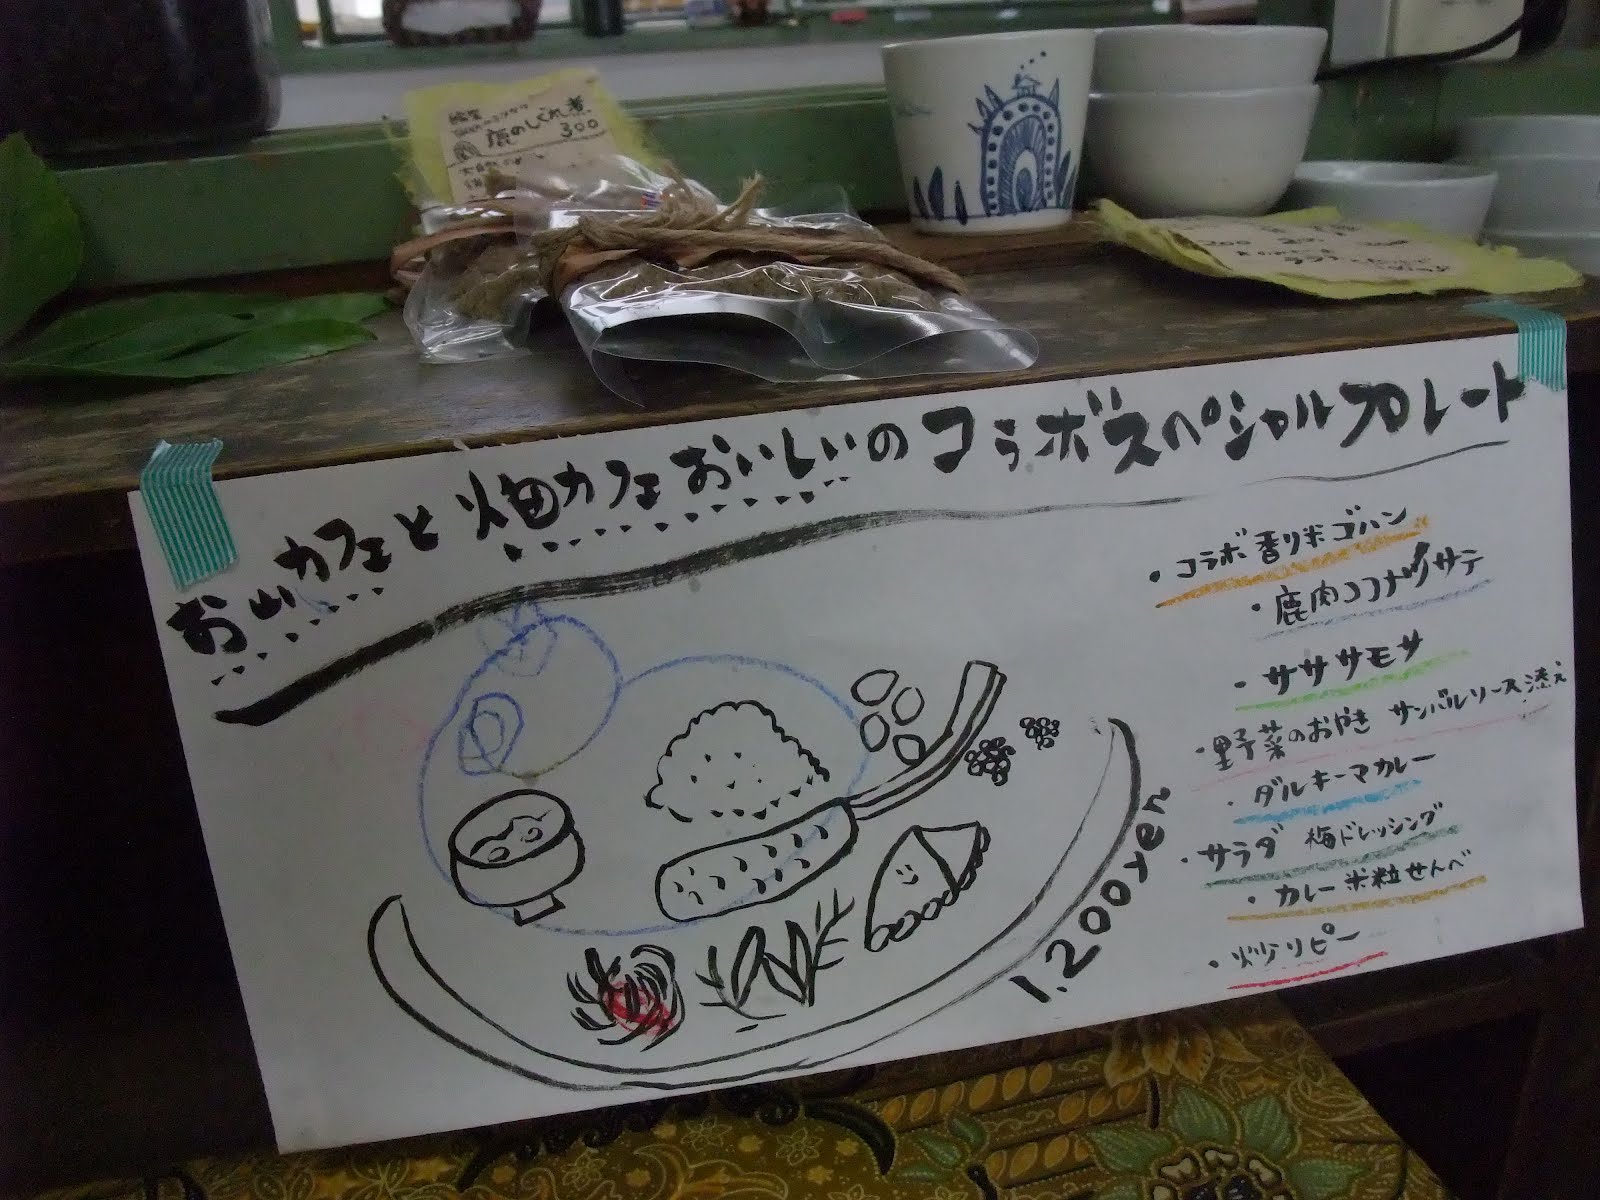 鹿のしぐれ煮
300
お山カフェと畑カフェおいしいのコラボスペシャルプレート
・コラボ香り米ゴハン
・鹿肉ココナッツサテ
・ササササモサ
・野菜のおやき サンバルソース添え
・ダルキーマカレー
・サラダ 梅ドレッシング
・カレー米粒せんべ
1.200yen